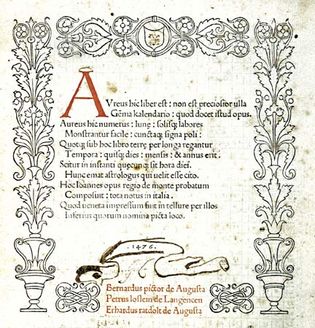 AUreus hic liber est: non est preciosior ulla
Gẽma kalendario: quod docet istud opus.
Aureus hic numerus: lune: solisq; labores
Monstrantur facile: cunctaq; signa poli:
Quotq; sub hoc libro terre per longa regantur
Tempora: quisq; dies: mensis: & annus erit.
Scitur in instanti quecunq; sit hora diei.
Hunc emat astrologus qui velit esse cito.
Hoc Ioannes opus regio de monte probatum
Composuit: tota notus in italia.
Quod veneta impressum fuit in tellure per illos
Inferius quorum nomina picta loco.
1476.
Bernardus pictor de Augusta
Petrus loslein de Langencen
Erhardus ratdolt de Augusta